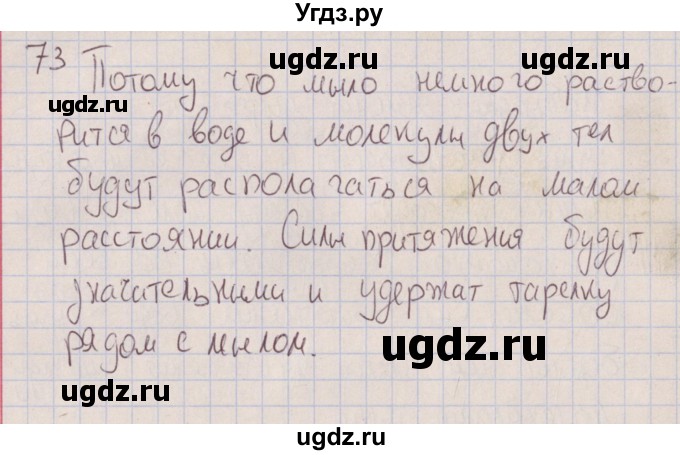 Угдз.ру
ugdz.ru ugdz.ru
73 Потому что мыло немного раство-
ugdz.ru
рится в воде и молекулы двух тел
ugdz.ru
будут располагаться на малом
расстоянии. Силы притяжения будут
ugdz.ru ugdz.ru
значительными и удержат тарелку
рядом с мылом.
ugdz.ru
ugdz.ru
ugdz.ru